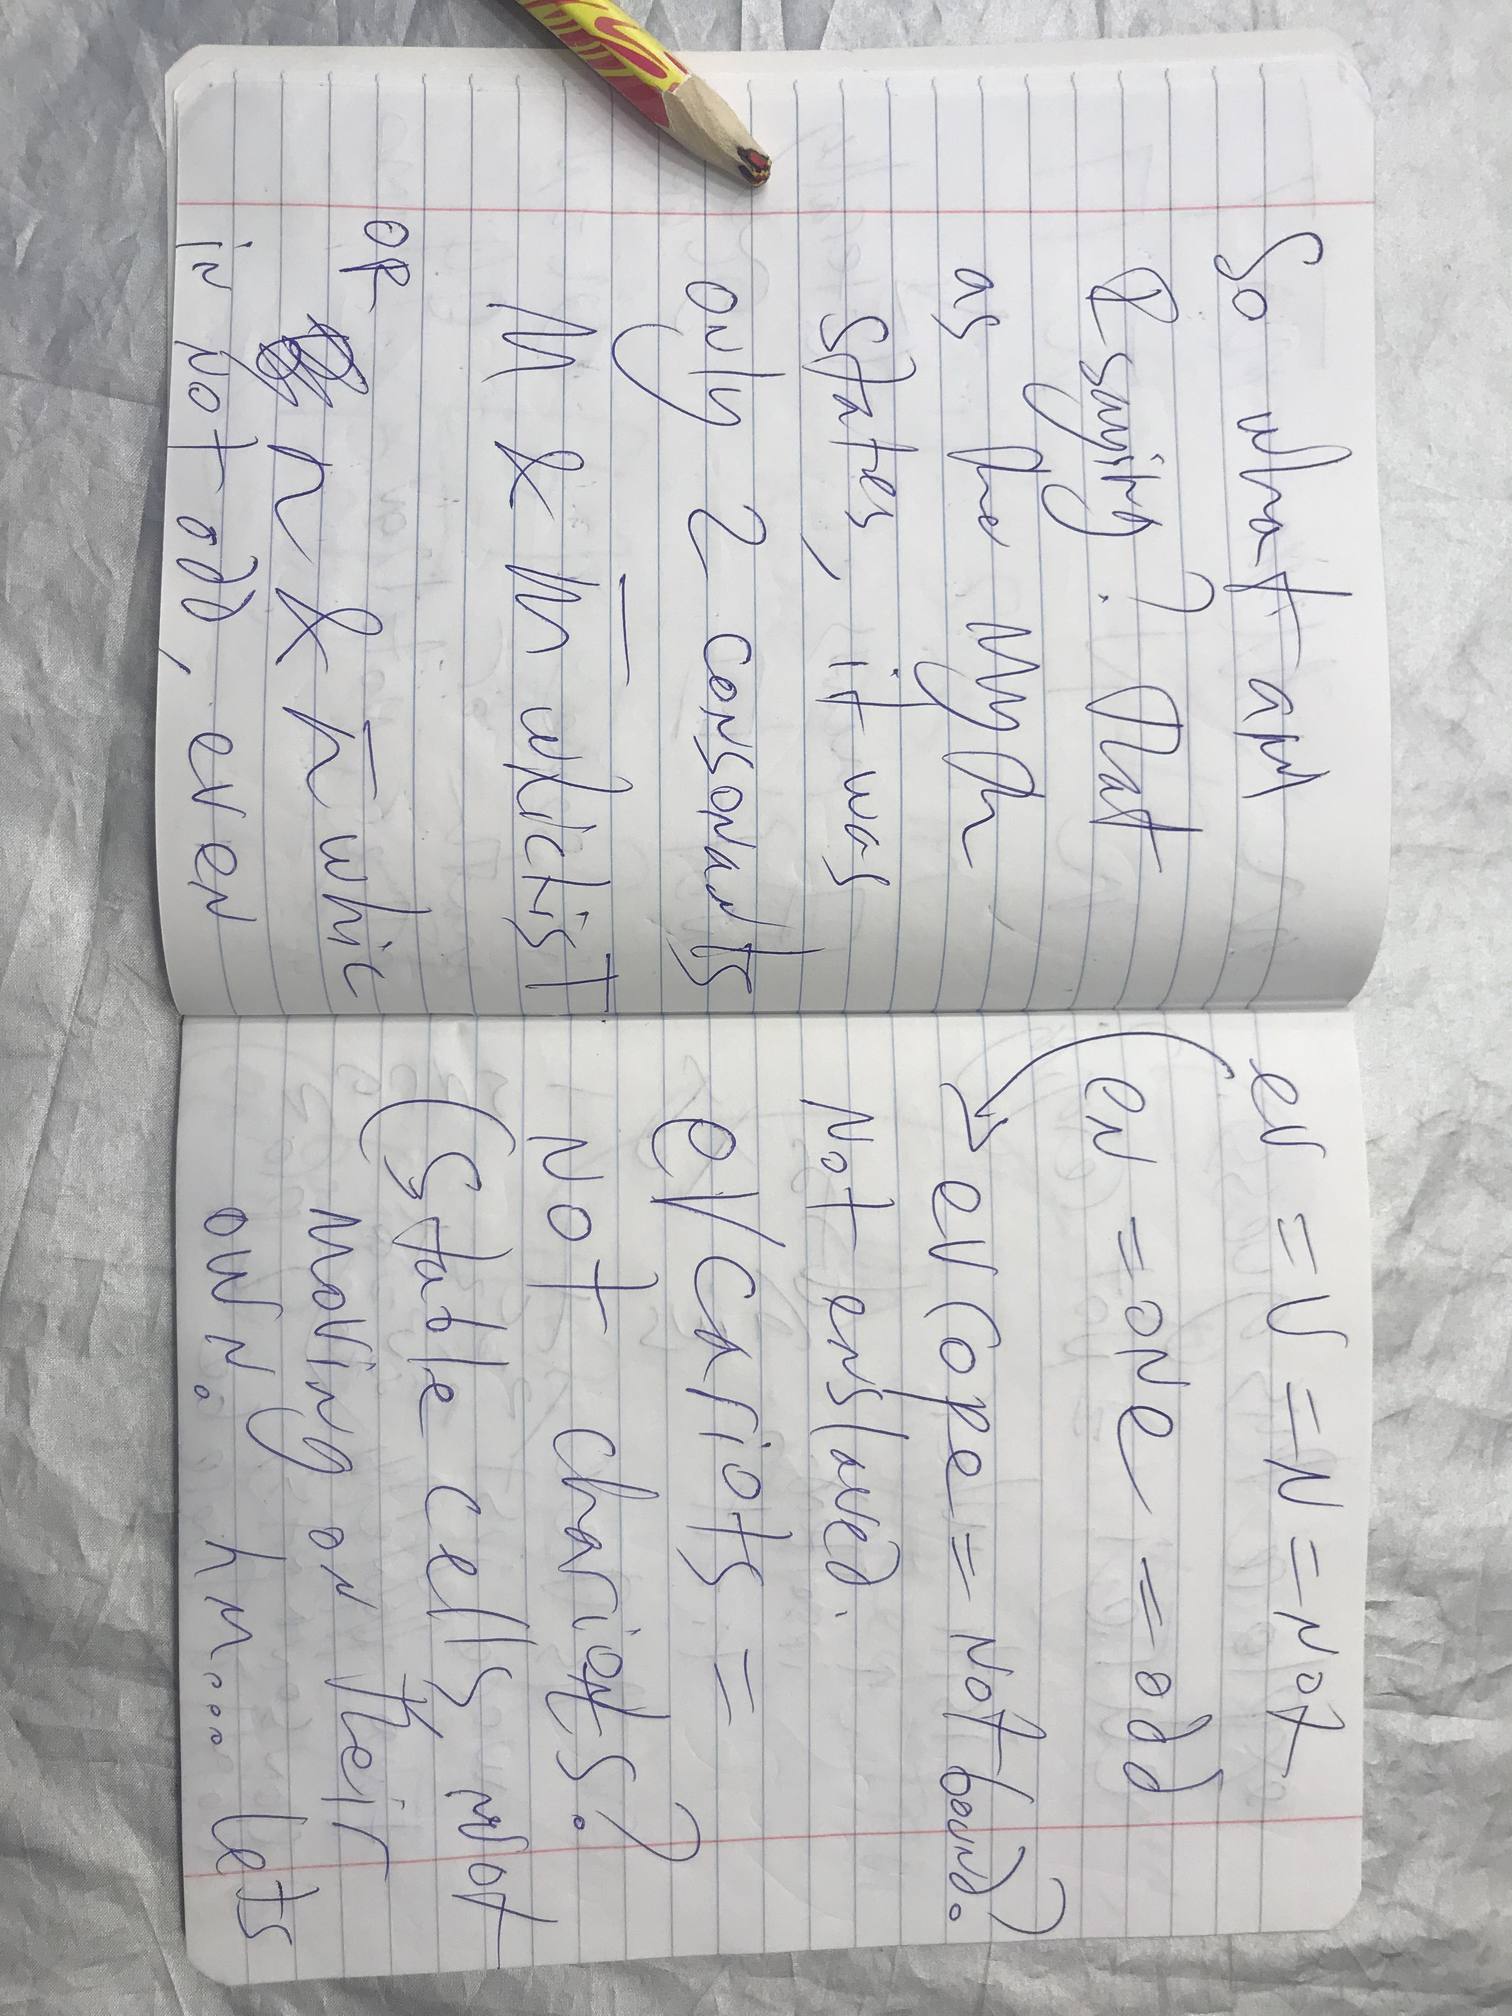 So what am
I saying? That
as the Myth
states, it was
only 2 consonants
M & M̅ whichisT
OR n & n̅ whic
in Not odd, even
ev = V = N = Not
en = one = odd
→ evcope = Not bound?
Not enslaved.
evcariots =
Not chariots?
(Stable cells Not
moving on their
own. hm.... lets